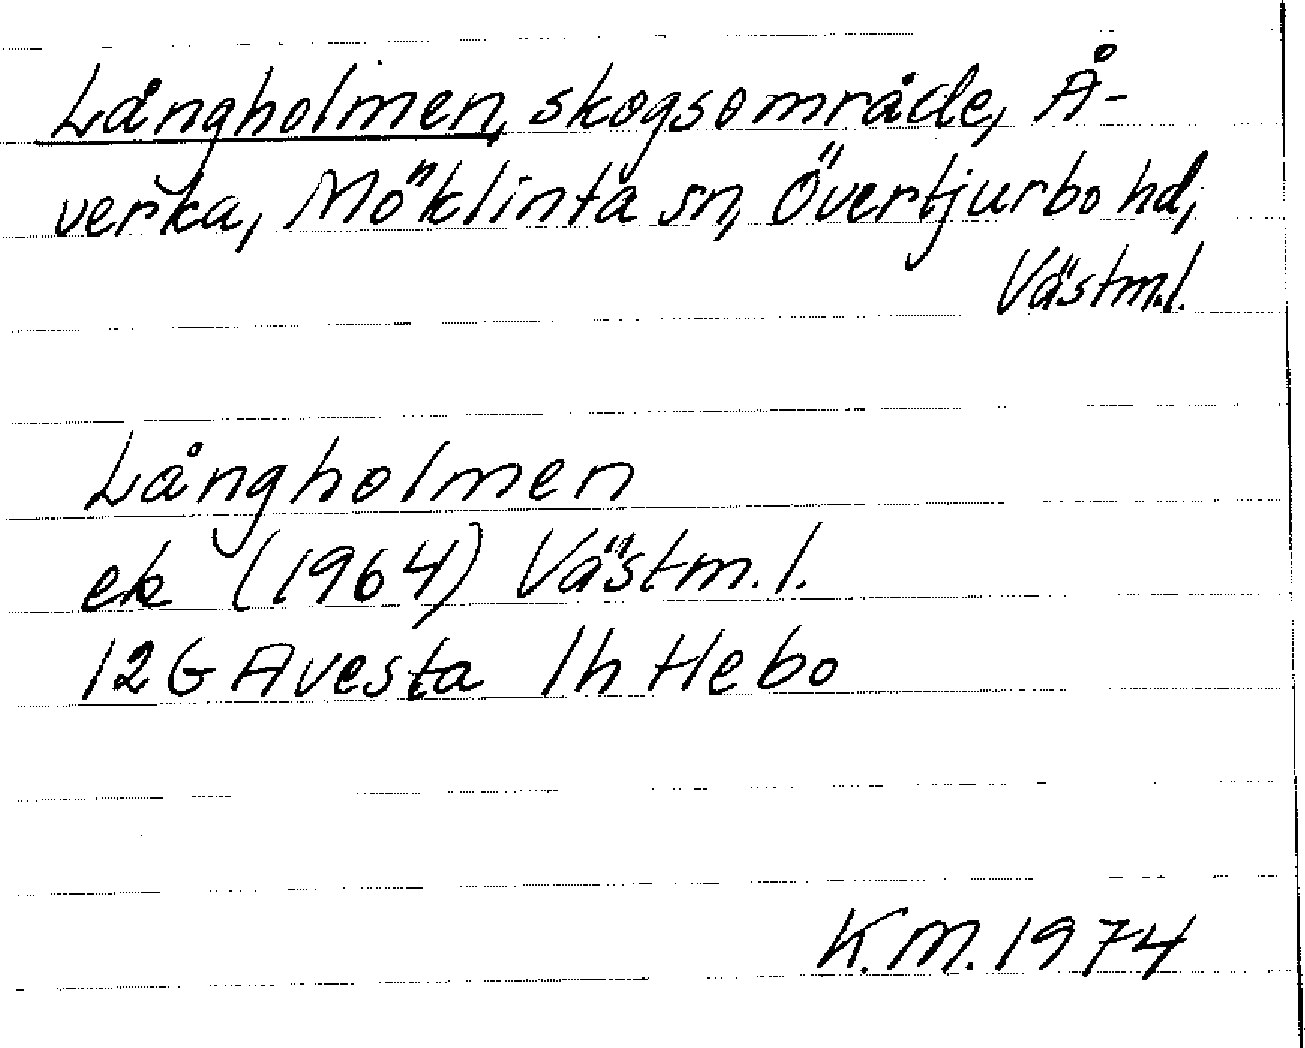 Långholmen, skogsområde, Å-
verka, Möklinta sn, Övertjurbo hd,
Västm.l.
Långholmen
ek (1964) Västm.l.
12G Avesta 1h Hebo
K.M. 1974